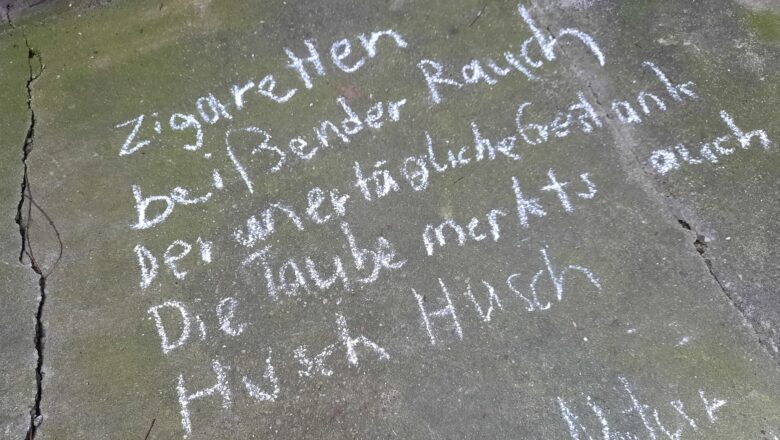 Zigaretten
beißender Rauch
Der unertägliche Gestank
Die Taube merkts auch
Husch Husch
Natur